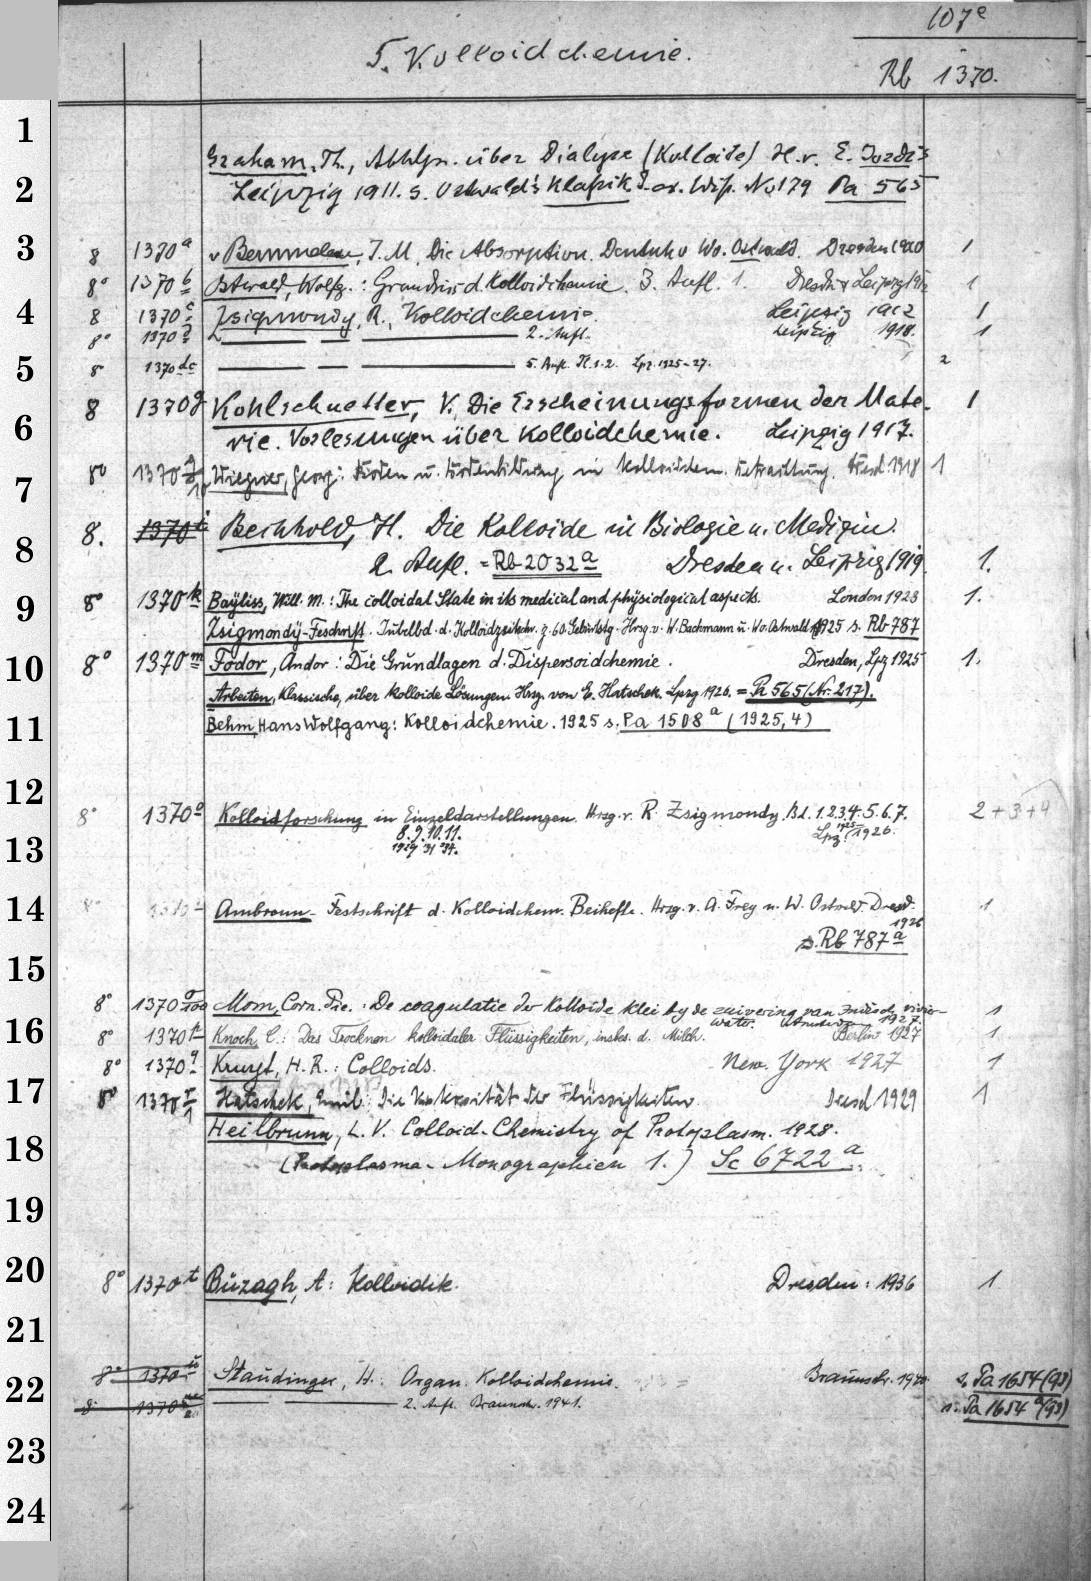 107e
5. Kolloidchemie.
Rb 1370.
1
Graham, Th., Abhlgn. über Dialyse (Kolloide) H.v. E. Jordis
2
Leipzig 1911. s. Ostwald's Klassik. d. ex. Wiss. No 179 Pa 565
3
8 1370a v Bemmelen, J. M. Die Absorption. Dresden 1910 1
8° 1370b Ostwald, Wolfg.: Grundriss d. Kolloidchemie. 3. Aufl. 1. Dresden & Leipzig 1
4
8 1370c Zsigmondy, R., Kolloidchemie. Leipzig 1912 1
8° 1370d — — — 2. Aufl. Leipzig 1918. 1
5
8 1370dc — — — 5. Aufl. Tl. 1-2. Lpz. 1925-27. 2
8 1370g Kohlschuetter, V. Die Erscheinungsformen der Mate- 1
6
rie. Vorlesungen über Kolloidchemie. Leipzig 1917.
8° 1370 Wiegner, Georg: Boden u. Bodenbildung in kolloidchem. Betrachtung. Dresd. 1918 1
7
8. 1370i Bechhold, H. Die Kolloide in Biologie u. Medizin.
8
2. Aufl. = Rb 2032a Dresden u. Leipzig 1919. 1.
9
8° 1370k Bayliss, Will. M.: The colloidal State in its medical and physiological aspects. London 1923 1.
Zsigmondy-Feschrift. Jubelbd. d. Kolloidzeitschr. z. 60. Geburtstg. Hrsg. v. W. Bachmann u. Wo. Ostwald 1925 s. Rb 787
10
8° 1370m Fodor, Andor: Die Grundlagen d. Dispersoidchemie. Dresden, Lpz 1925 1.
Arbeiten, Klassische, über kolloide Lösungen. Hrsg. von E. Hatschek. Lpzg 1926. = Pa 565 (Nr. 217).
11
Behm, Hans Wolfgang: Kolloidchemie. 1925 s. Pa 1508a (1925,4)
12
8° 1370o Kolloidforschung in Einzeldarstellungen. Hrsg. v. R. Zsigmondy. Bd. 1.2.3.4.5.6.7. 2+3+4
8. 9. 10. 11. Lpz. 1925-1926.
13
1929 31 34.
14
8° 1370 Ambronn-Festschrift d. Kolloidchem. Beihefte. Hrsg. v. A. Frey u. W. Ostwald. Dresd. 1
1926
s. Rb 787a
15
8° 1370 Mom, Corn. Pie.: De coagulatie der kolloide klei by de zuivering van Indisch rivier- 1
water. 1927.
16
8° 1370p Knoch, C.: Das Trocknen kolloidaler Flüssigkeiten, insbes. d. Milch. Berlin 1927 1
8° 1370q Kruyt, H. R.: Colloids. New York 1927 1
17
8° 1370r Hatschek, Emil: Die Viskosität der Flüssigkeiten. Dresd. 1929 1
Heilbrunn, L. V. Colloid-Chemistry of Protoplasm. 1928.
18
(Protoplasma-Monographien 1.) Sc 6722a
19
20
8° 1370t Buzagh, A: Kolloidik. Dresden: 1936 1
21
8° 1370u Staudinger, H.: Organ. Kolloidchemie. Braunschw. 1940 s. Pa 1654 (93)
22
8° 1370 — — 2. Aufl. Braunschw. 1941. s. Pa 1654a (93)
23
24